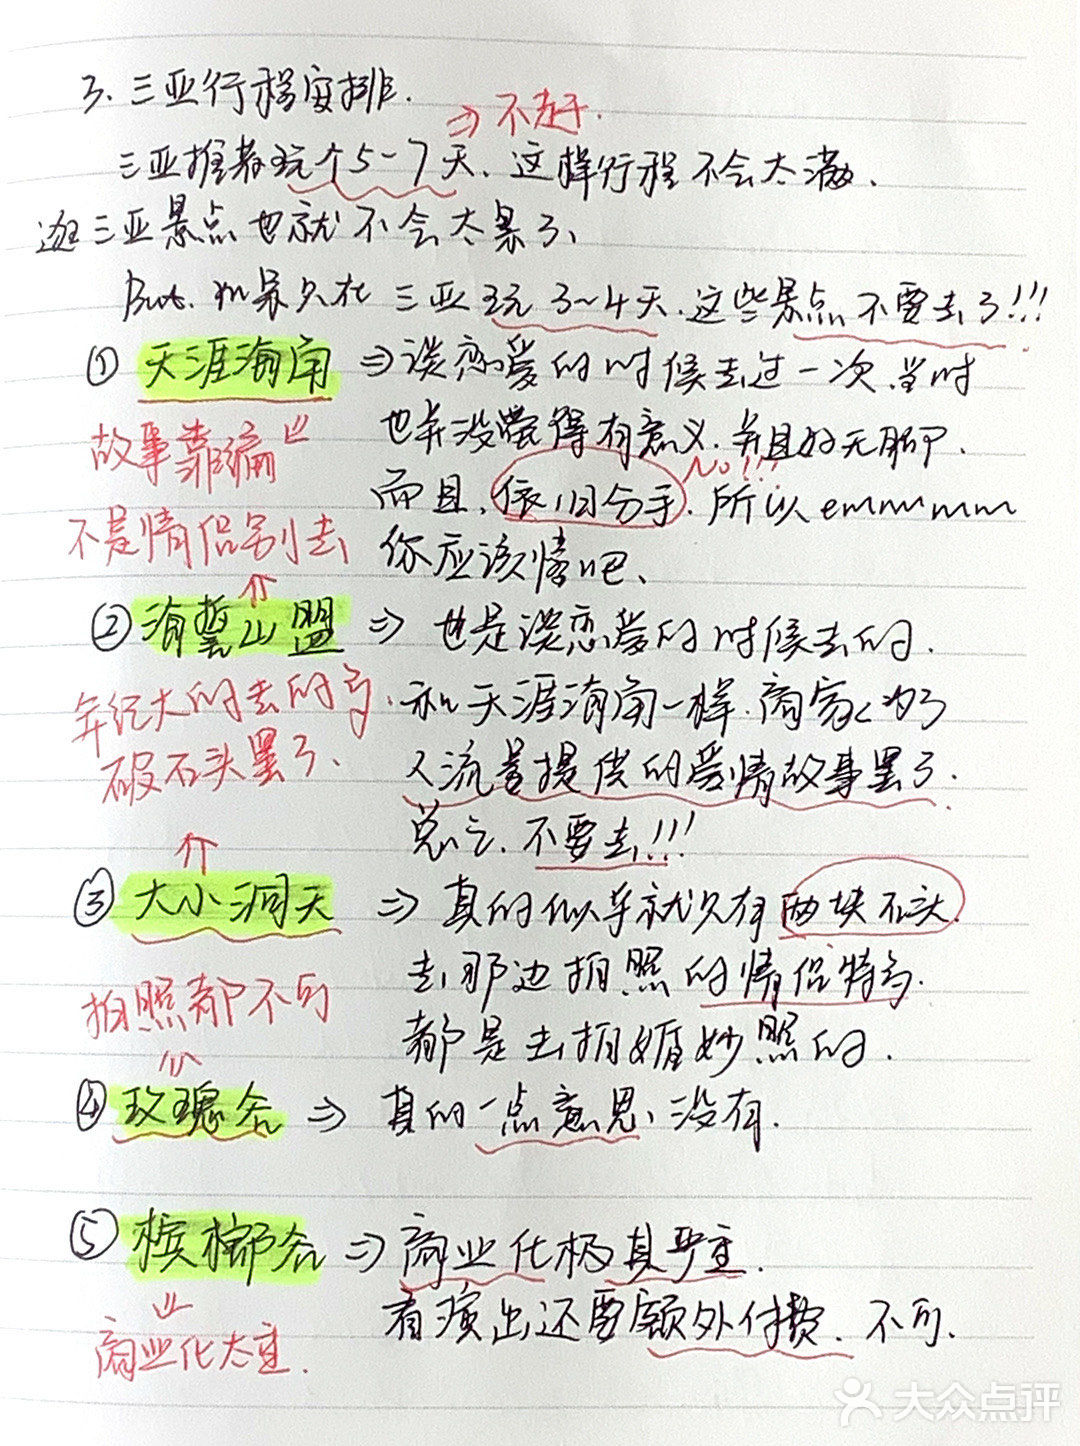 3. 三亚行程安排.
⇒ 不赶.
三亚推荐玩个5-7天、这样行程不会太满、
逛三亚景点也就不会太累了、
But. 如果只在三亚玩3~4天.这些景点不要去了!!!
① 天涯海角 ⇒ 谈恋爱的时候去过一次.当时
故事靠编
也并没觉得有意义.并且好无聊.
No!!!
而且、依旧分手.所以emmmmm
不是情侣别去
你应该懂吧、
② 海誓山盟 ⇒ 也是谈恋爱的时候去的.
年纪大的去的多.
和天涯海角一样.商家为了
破石头罢了.
人流量提供的爱情故事罢了.
总之.不要去!!!
③ 大小洞天 ⇒ 真的似乎就只有两块石头.
去那边拍照的情侣特多.
拍照都不可
都是去拍婚纱照的.
④ 玫瑰谷 ⇒ 真的一点意思、没有.
⑤ 槟榔谷 ⇒ 商业化极其严重.
看演出还要额外付费.不可.
商业化太重.
大众点评